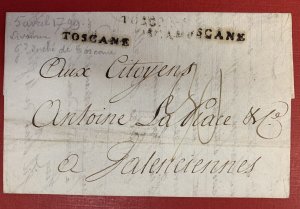 5 avril 1799
TOSCANE
TOSCANE
Livourne
Gd duché de Toscane
Aux Citoyens
Antoine La Place & Cie
a Valenciennes